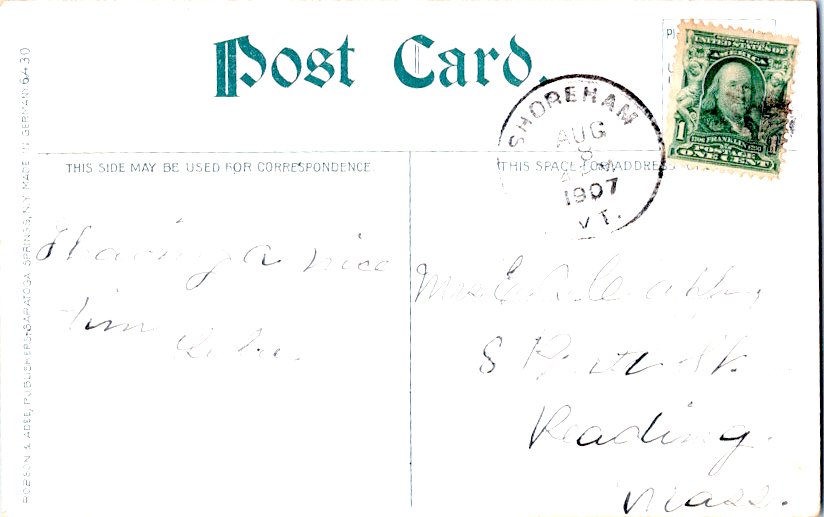 Post Card.
UNITED STATES OF
AMERICA
1
FRANKLIN
POSTAGE
ONE CENT
SHOREHAM
AUG
8
1907
VT.
THIS SIDE MAY BE USED FOR CORRESPONDENCE.
THIS SPACE FOR ADDRESS
Having a nice
tim
Mrs E
8 St.
Reading.
Mass.
ROBSON & ADEE, PUBLISHERS, SARATOGA SPRINGS, N.Y. MADE IN GERMANY 6430